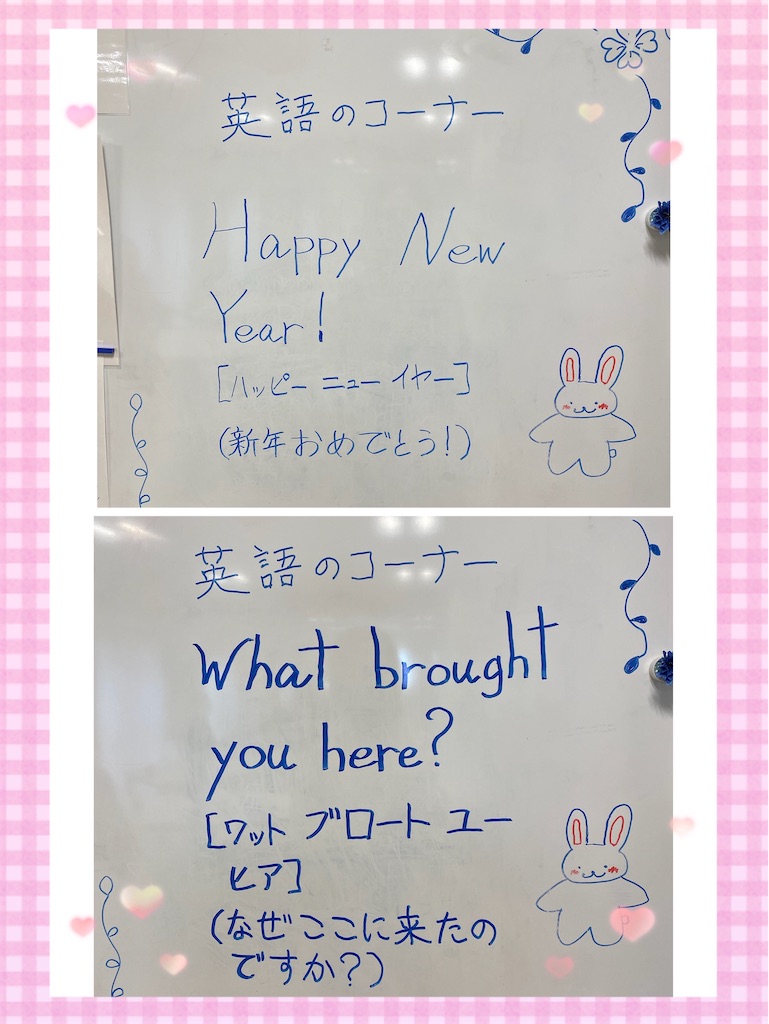 英語のコーナー
Happy New
Year!
[ハッピー ニュー イヤー]
(新年おめでとう!)
英語のコーナー
What brought
you here?
[ワット ブロート ユー
ヒア]
(なぜここに来たの
ですか?)